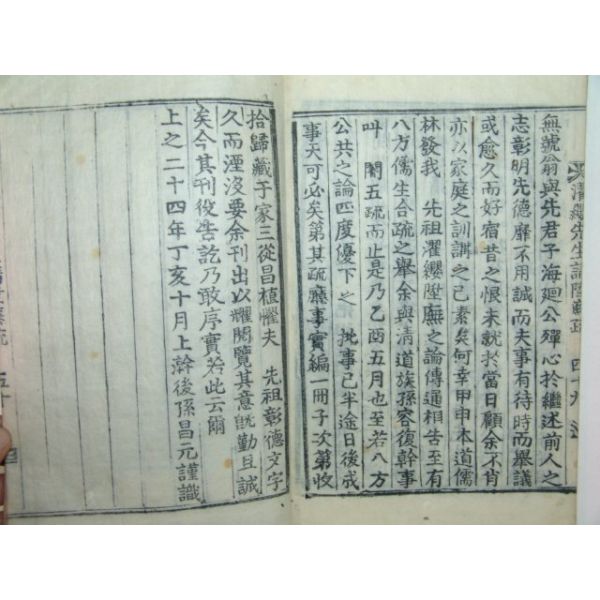 無號翁與先君子海廻公殫心於繼述前人之
志彰明先德靡不用誠而夫事有待時而舉議
或愈久而好宿昔之恨未就於當日顧余不肖
亦以家庭之訓講之已素矣何幸甲申本道儒
林發我 先祖濯纓陞廡之論傳通相告至有
八方儒生合疏之舉余與淸道族孫容復幹事
叫 閤五疏而止是乃乙酉五月也至若八方
公共之論四度優下之 批事已半途日後成
事天可必矣第其疏廳事實編一冊子次第收
拾歸藏于家三從昌植懼夫 先祖彰德文字
久而湮沒要余刊出以耀閱覽其意旣勤且誠
矣今其刊役告訖乃敢序實若此云爾
上之二十四年丁亥十月上澣後孫昌元謹識
濯纓先生請陞廡疏 四十九
五十